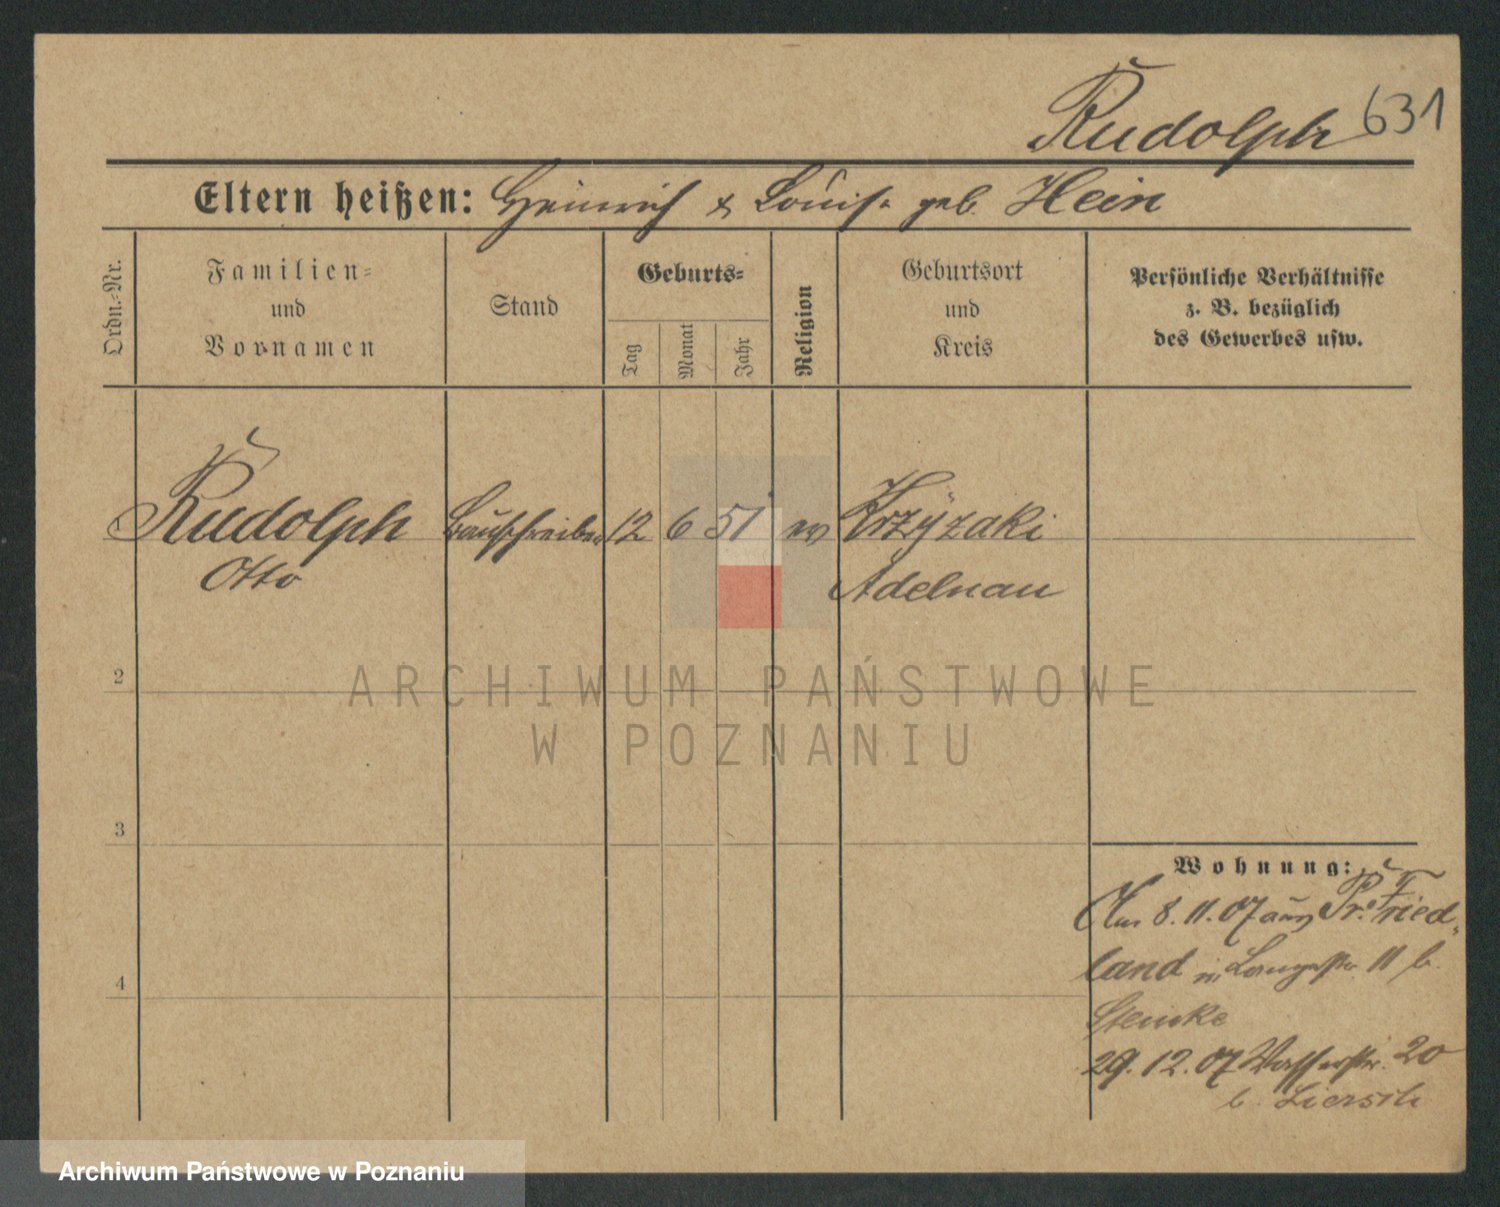 Rudolph 631
Eltern heißen: Heinrich & Louise geb. Hein
Ordn.-Nr.
Familien-
und
Vornamen
Stand
Geburts-
Tag
Monat
Jahr
Religion
Geburtsort
und
Kreis
Persönliche Verhältnisse
z. B. bezüglich
des Gewerbes usw.
1 Rudolph Bauschreiber 12 6 51 ev Krzyzaki
Otto Adelnau
2
3
4
Wohnung:
Am 8.11.07 aus Pr. Fried-
land in Langestr. 11 b.
Steinke
29.12.07 Wasserstr. 20
b. Liersch
ARCHIWUM PAŃSTWOWE
W POZNANIU
Archiwum Państwowe w Poznaniu